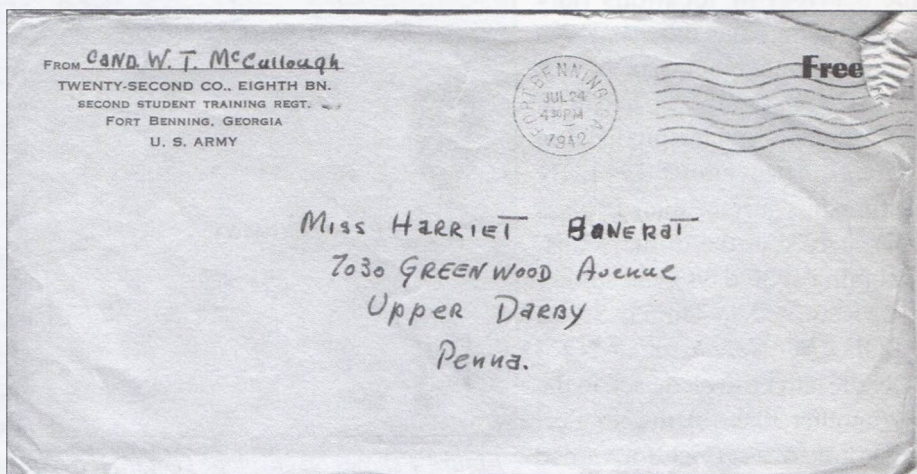 FROM CAND. W. T. McCullough
TWENTY-SECOND CO., EIGHTH BN.
SECOND STUDENT TRAINING REGT.
FORT BENNING, GEORGIA
U. S. ARMY
FORT BENNING, GA.
JUL 24
4 30 PM
1942
Free
Miss HARRIET
7030 GREENWOOD Avenue
Upper DARBY
Penna.